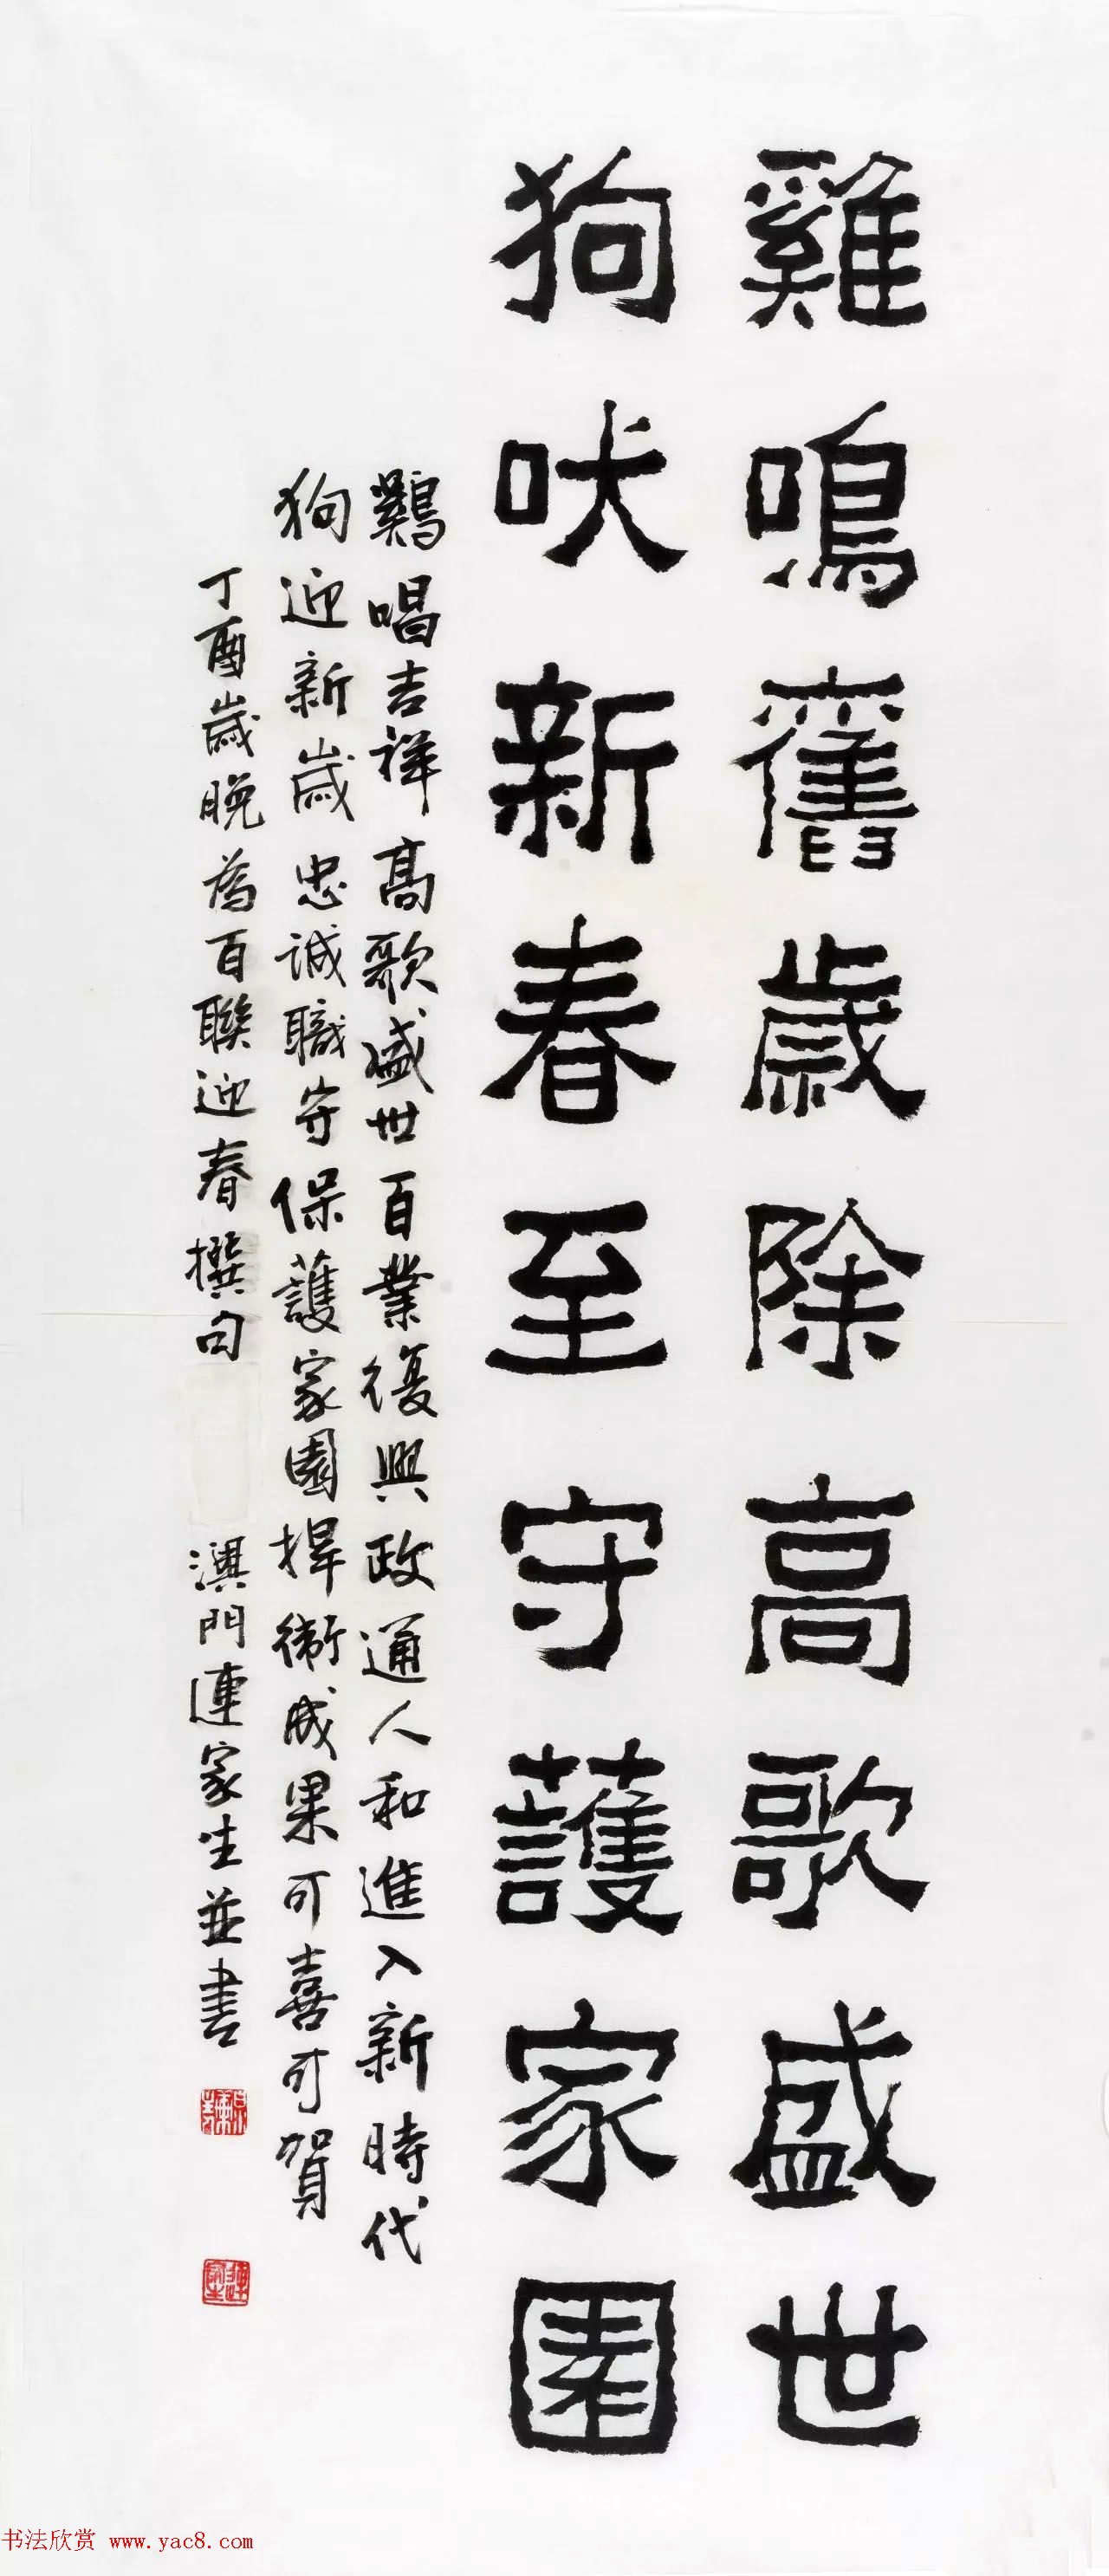 雞鳴舊歲除高歌盛世
狗吠新春至守護家園
鷄唱吉祥高歌盛世百業復興政通人和進入新時代
狗迎新歲忠誠職守保護家園捍衛成果可喜可賀
丁酉歲晚為百聯迎春撰句 澳門連家生並書
连家生
书法欣赏 www.yac8.com